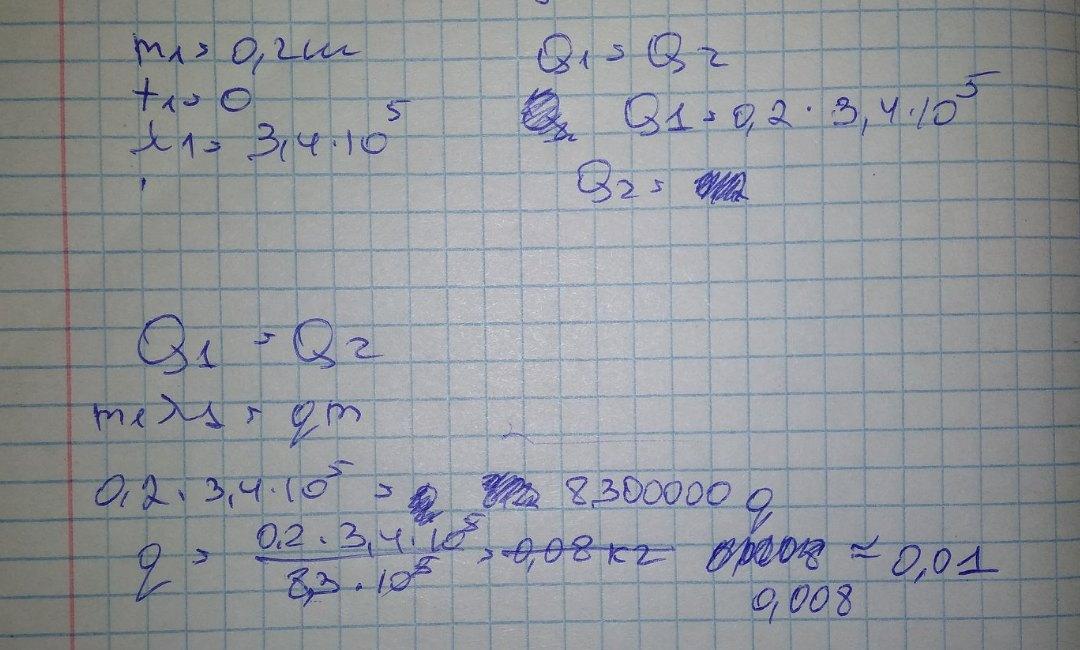 m₁ = 0,2 кг
t₁ = 0
λ1 = 3,4·10⁵
Q₁ = Q₂
Q1 = 0,2 · 3,4·10⁵
Q₂ =
Q₁ = Q₂
m₁λ₁ = qm
0,2 · 3,4·10⁵ = 8300000 q
q = 0,2·3,4·10⁵ / 8,3·10⁵ = 0,08 кг ≈ 0,01
0,008